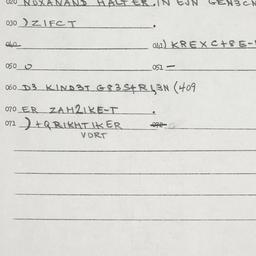 020 NOXANAND HALTER, IN EJN GENSCH
030 )ZIFCT .
040 041) KREXC+8E-
050 O 051 —
060 D3 KIND3T G83S+R
070 ER ZAH2IKE-T .
072 )+QRIKHTIKER 072
VORT